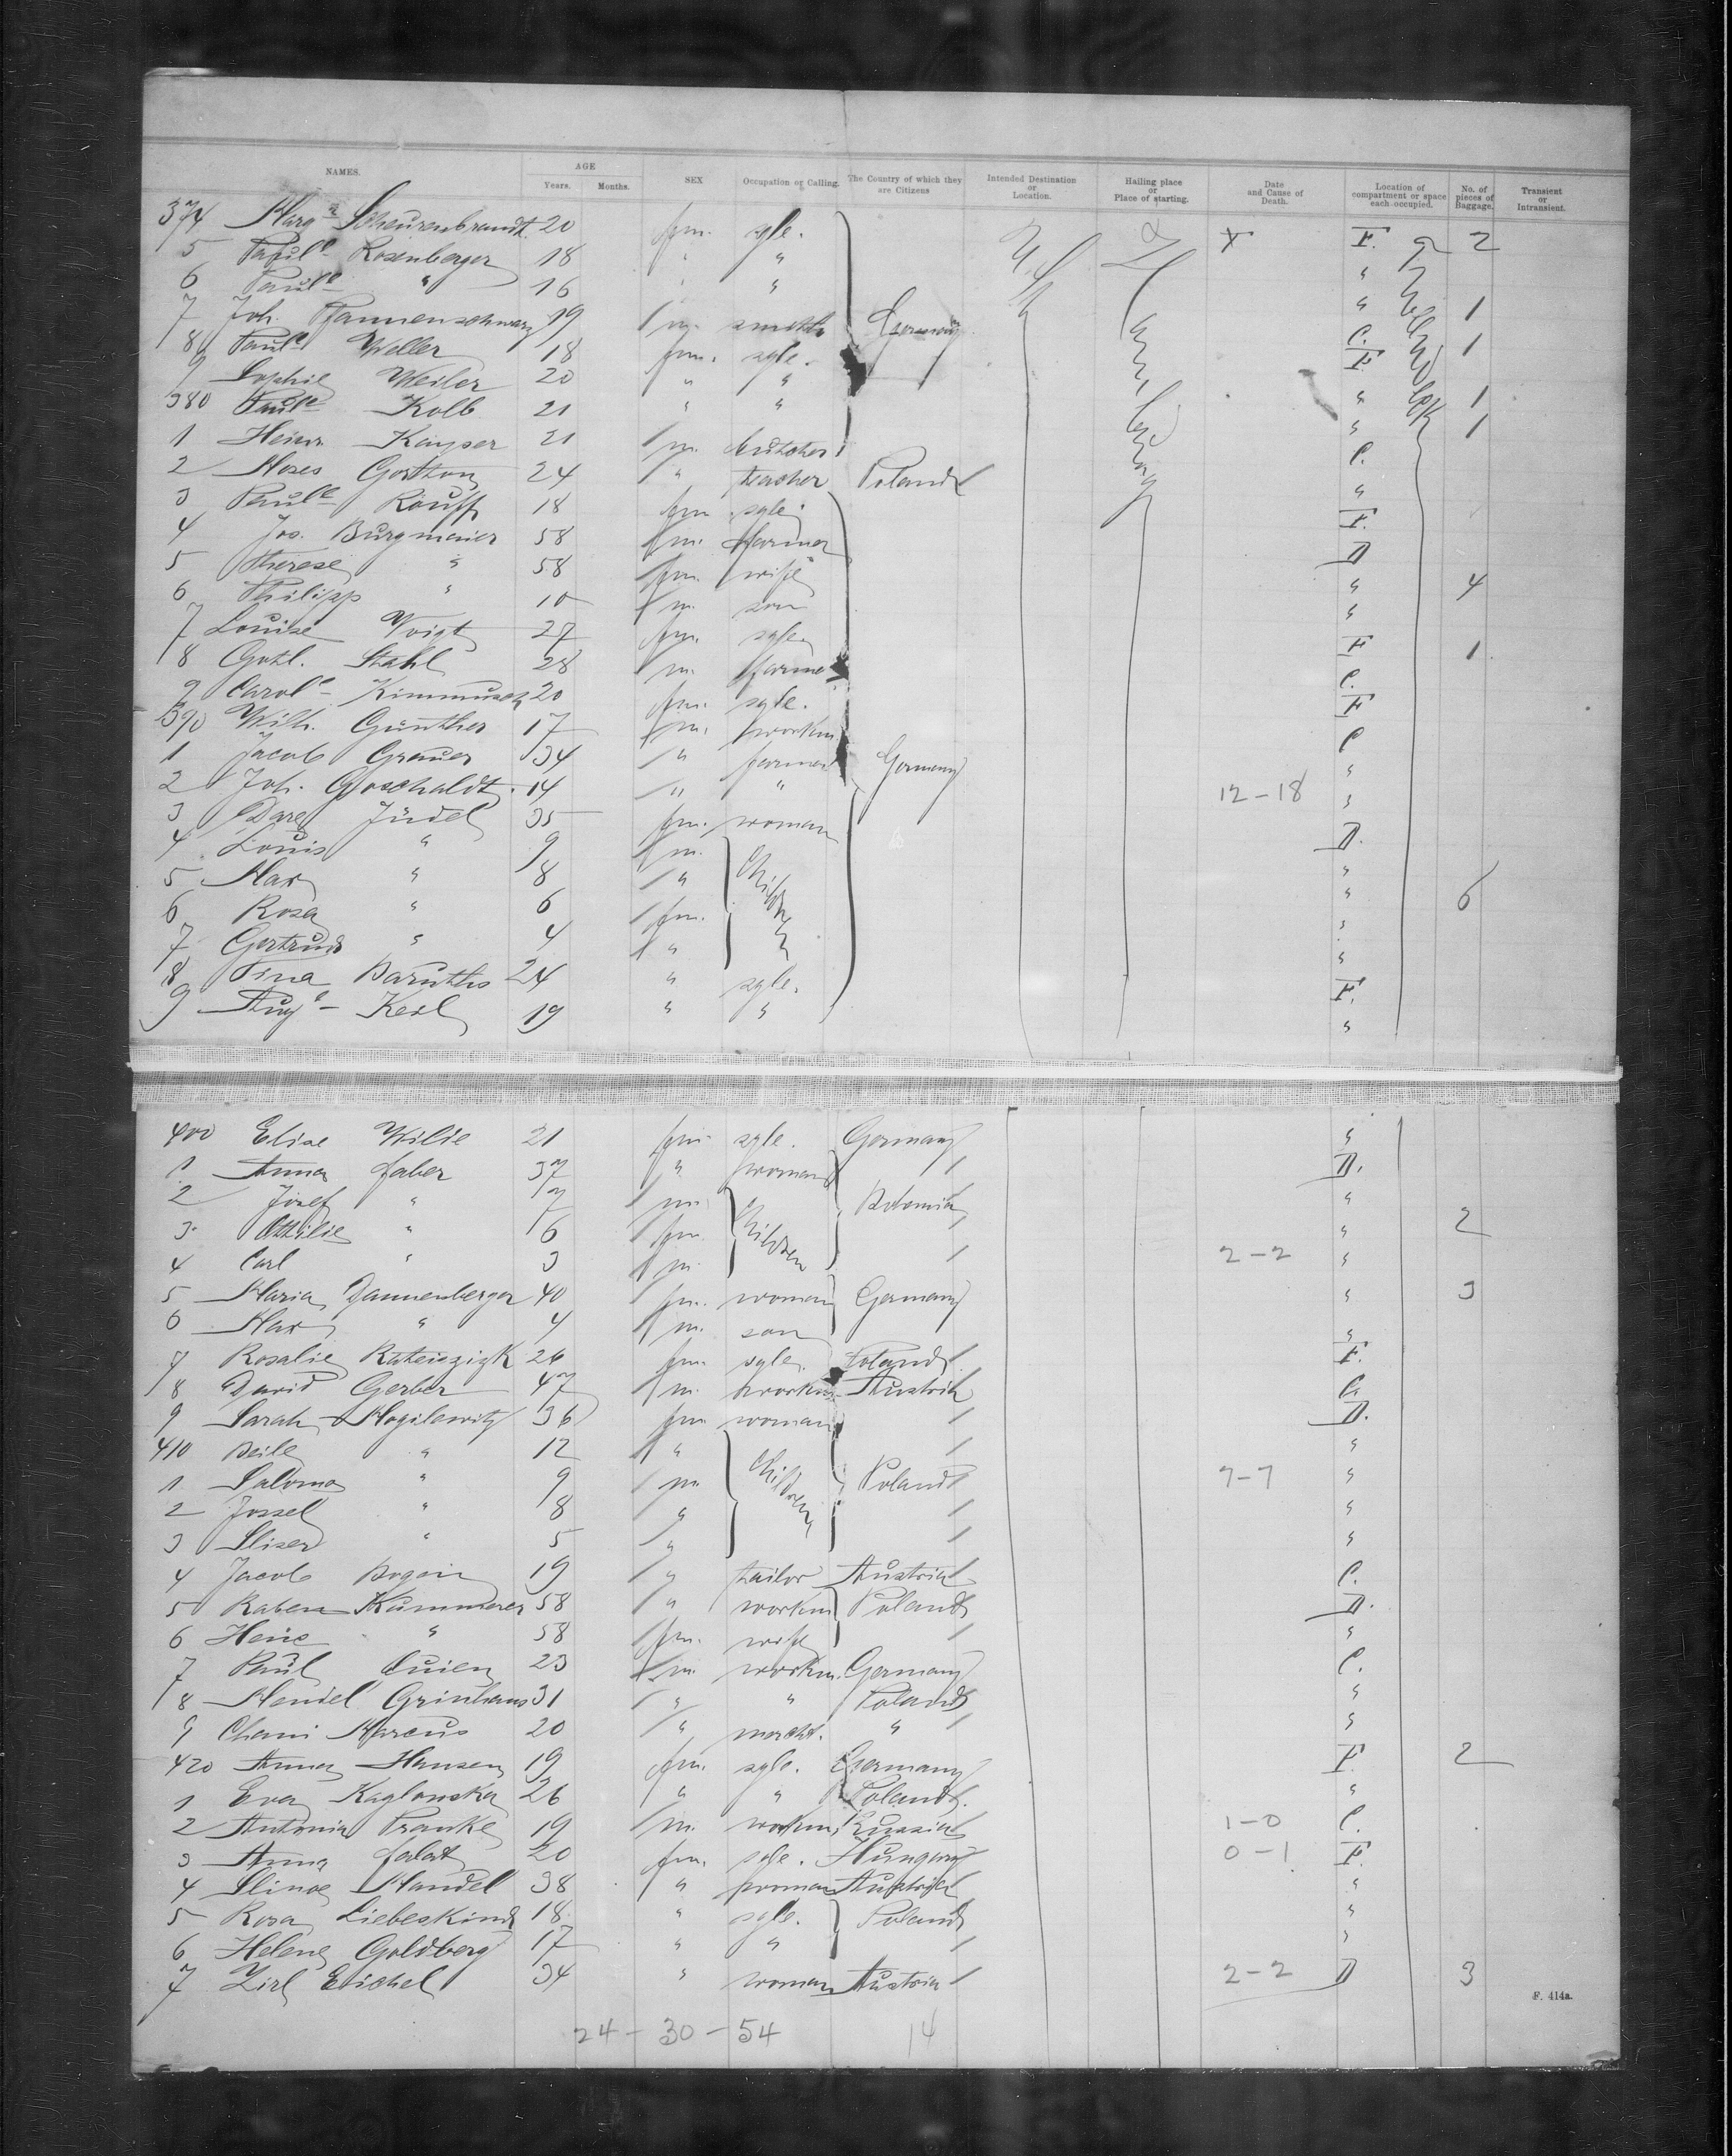 NAMES. AGE Years. Months. SEX Occupation or Calling. The Country of which they are Citizens Intended Destination or Location. Hailing place or Place of starting. Date and Cause of Death. Location of compartment or space each occupied. No. of pieces of Baggage. Transient or Intransient.
374 Marg Scheurenbrandt 20 fm. sgle. X F. 2
5 Paul Rosenberger 18 " "
6 Paul " 16 " "
7 Joh. Pfannenschwarz 19 m. smith Germany C. 1
8 Paul Weller 18 fm. sgle. F 1
9 Sophie Weiler 20 " "
380 Paul Kolb 21 " " " 1
1 Heinr Kayser 21 m. butcher C. 1
2 Moses 24 " teacher Poland "
3 Paul Rouff 18 fm sgle. F.
4 Jos. Burgmaier 58 m. farmer D
5 Therese " 58 fm. wife "
6 Philipp " 10 m. son " 4
7 Louise Voigt 27 fm. sgle. F
8 Gotl. Stahl 28 m. farmer C. 1
9 Carol 20 fm. sgle. F
390 Wilh. Günther 17 m. workm C
1 Jacob Grauer 34 " farmer Germany "
2 Joh. 14 " " 12-18 "
3 Jüdel 35 fm. woman D.
4 Louis " 9 m. "
5 Max " 8 " Children "
6 Rosa " 6 fm. " 6
7 Gertrud " 4 " "
8 24 " sgle. F.
9 Aug Kerl 19 " " "
400 Elise Wilie 21 fm. sgle. Germany "
1 Anna Faber 37 " woman D.
2 Josef " 7 m. "
3 Ottilie " 6 fm. Children " 2
4 Carl " 3 m. 2-2 "
5 Maria Dannenberger 40 fm. woman Germany " 3
6 Max " 4 m. son "
7 Rosalie 26 fm. sgle. Poland F.
8 David Gerber 47 m. workm. Austria C.
9 Sarah Mogilewitz 36 fm woman D.
410 Beile " 12 " "
1 Saloma " 9 m Children Poland 7-7 "
2 Jossel " 8 " "
3 " 5 " "
4 Jacob 19 " tailor Austria C.
5 Kummerer 58 " workm Poland D.
6 " 58 fm. wife "
7 Paul 23 m. workm. Germany C.
8 Mendel Grinhaus 31 " " Poland "
9 Marcus 20 " " "
420 Anna Hansen 19 fm. sgle. Germany F. 2
1 Eva 26 " " Poland. "
2 Franke 19 m. workm. Russia 1-0 C.
3 Anna 20 fm. sgle. Hungary 0-1 F.
4 Mandel 38 " woman Austria "
5 Rosa Liebeskind 18 " sgle. Poland "
6 Helene Goldberg 17 " " "
7 Zirl Eichel 34 " woman Austria 2-2 D 3
F. 414a.
24-30-54 14